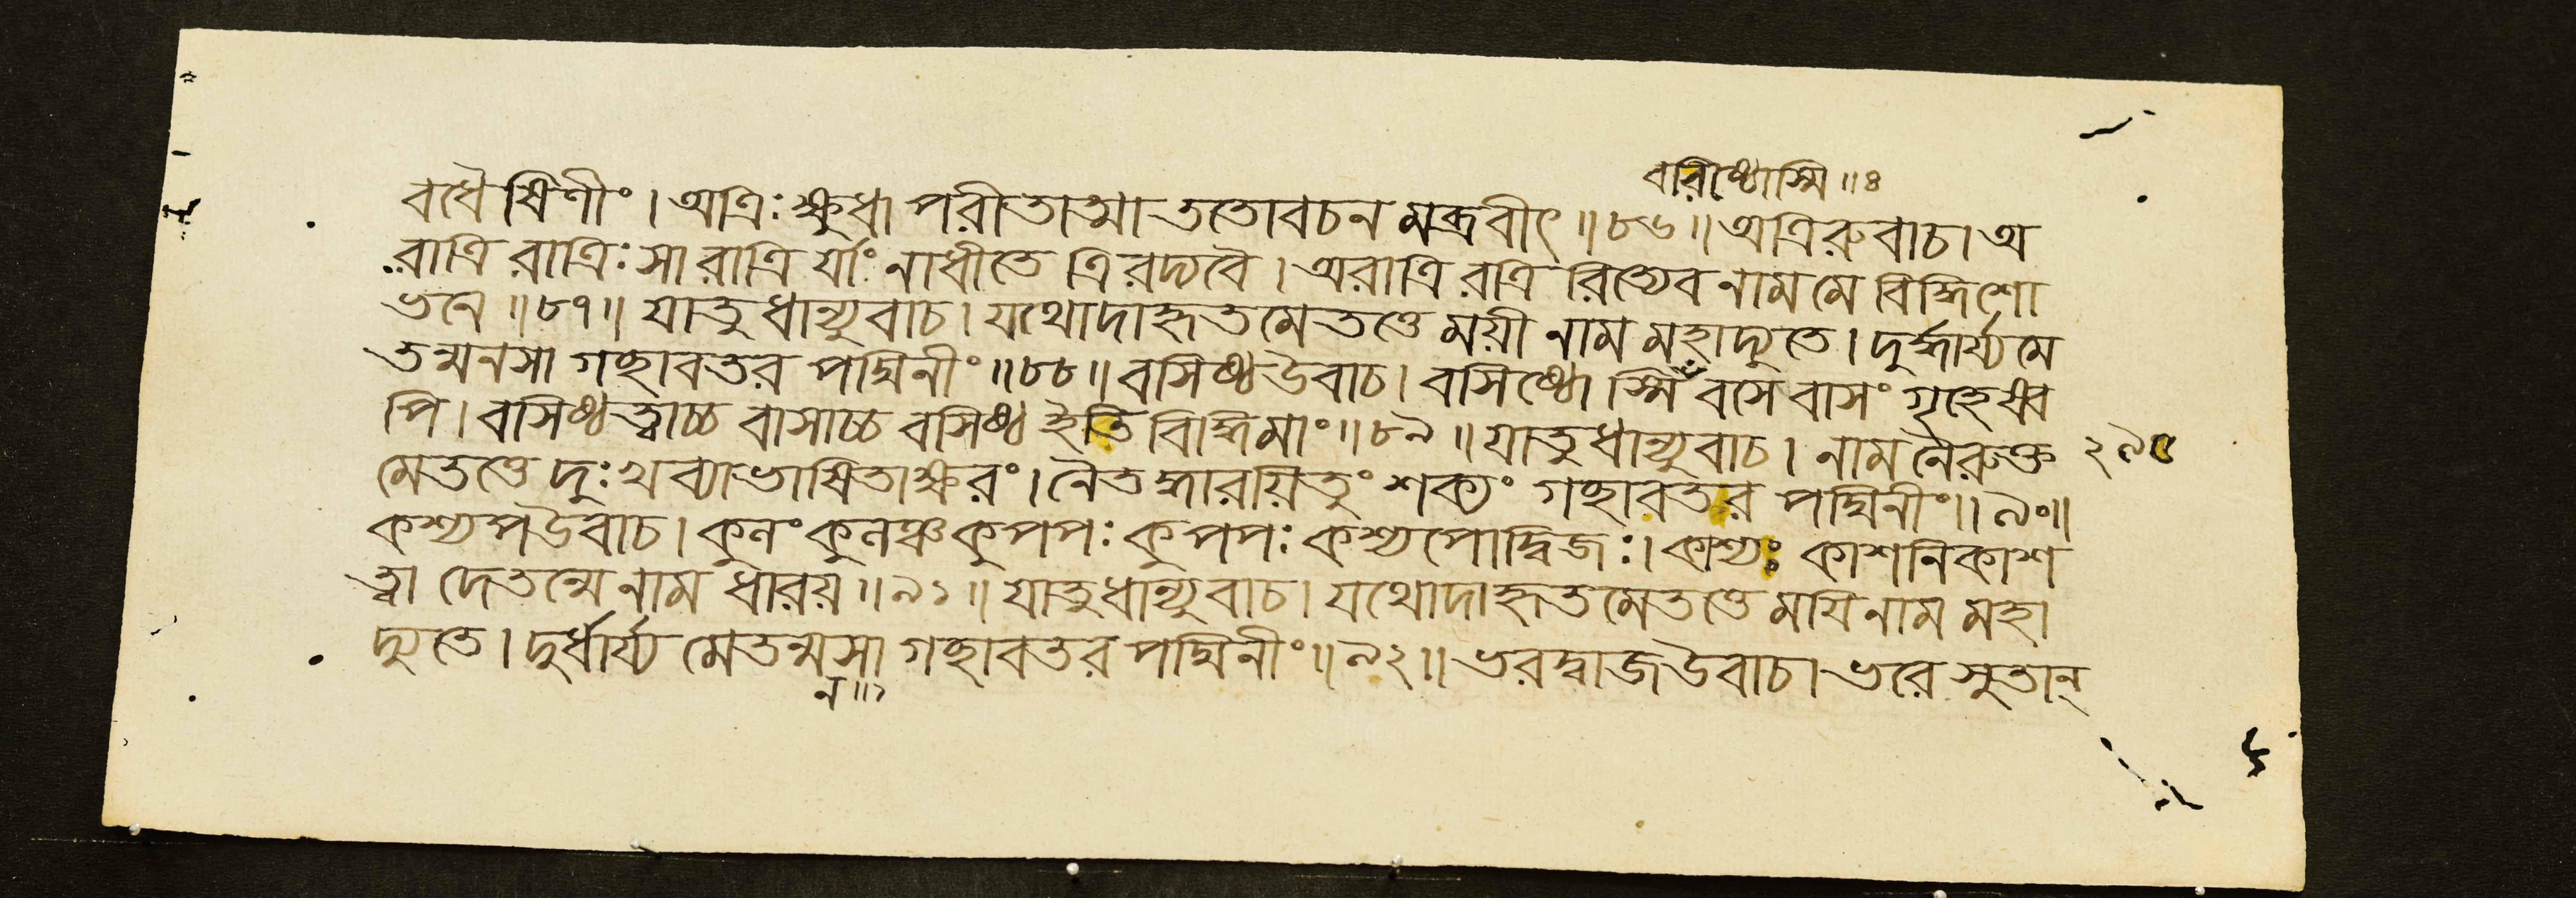 বরিষ্ঠোস্মি॥৪
বধৈষিণীং। অত্রিঃ ক্ষুধা পরীতাত্মা ততোবচন মব্রবীৎ॥৮৬॥ অত্রিরুবাচ। অ
রাত্রি রাত্রিঃ সা রাত্রি র্যাং নাধীতে ত্রি রদ্যবৈ। অরাত্রি রত্রি রিত্যেব নাম মে বিদ্ধিশো
ভনে॥৮৭॥ যাতুধান্যুবাচ। যথোদাহৃতমেতত্তে ময়ী নাম মহাদ্যুতে। দুর্দ্ধার্য্যমে
তন্মনসা গচ্ছাবতর পদ্মিনীং॥৮৮॥ বসিষ্ঠউবাচ। বসিষ্ঠো স্মি বসে বাসং গৃহেষ্ব
পি। বসিষ্ঠত্বাচ্চ বাসাচ্চ বসিষ্ঠ ইতি বিদ্ধিমাং॥৮৯॥ যাতুধান্যুবাচ। নাম নৈরুক্ত ২৯৫
মেতত্তে দুঃখব্যাভাষিতাক্ষরং। নৈতদ্ধারয়িতুং শক্যং গচ্ছাবতর পদ্মিনীং॥৯০॥
কশ্যপউবাচ। কুনং কুনঞ্চ কুপপঃ কুপপঃ কশ্যপোদ্বিজঃ। কাশ্যঃ কাশনিকাশ
ত্বা দেতন্মে নাম ধারয়॥৯১॥ যাতুধান্যুবাচ। যথোদাহৃতমেতত্তে ময়ি নাম মহা
দ্যুতে। দুর্ধার্য্য মেতন্মসা গচ্ছাবতর পদ্মিনীং॥৯২॥ ভরদ্বাজউবাচ। ভরে সুতান্
ন॥১